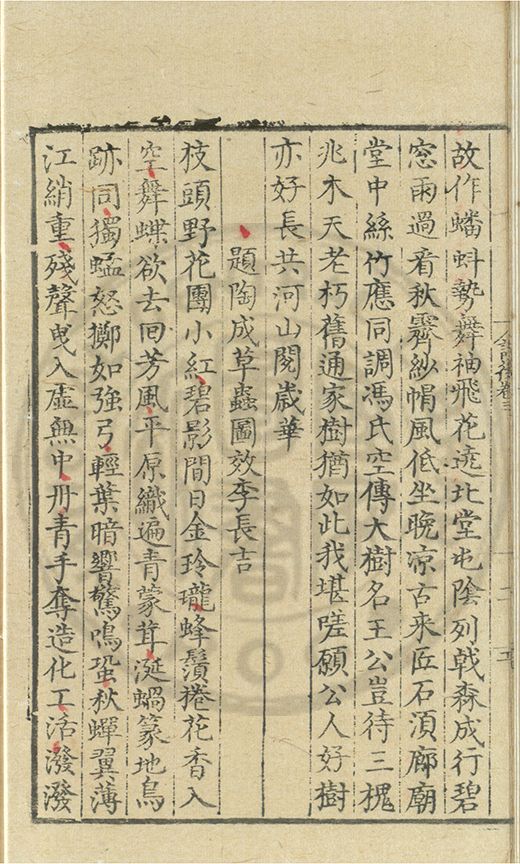 故作蟠蚪勢舞袖飛花遶北堂屯陰列戟森成行碧
窓雨過看秋霽紗帽風低坐晚凉古来匠石湏廊廟
堂中絲竹應同調馮氏空傳大樹名王公豈待三槐
兆木天老朽舊通家樹猶如此我堪嗟願公人好樹
亦好長共河山閱歳華
題陶成草蟲圖效李長吉
枝頭野花團小紅碧影閒日金玲瓏蜂鬚捲花香入
空舞蝶欲去回芳風平原織遍青蒙茸涎蝸篆地鳥
跡同獨蜢怒擲如強弓輕葉暗響驚鳴蛩秋蟬翼薄
江綃重殘聲曳入虛無中丹青手奪造化工活潑潑